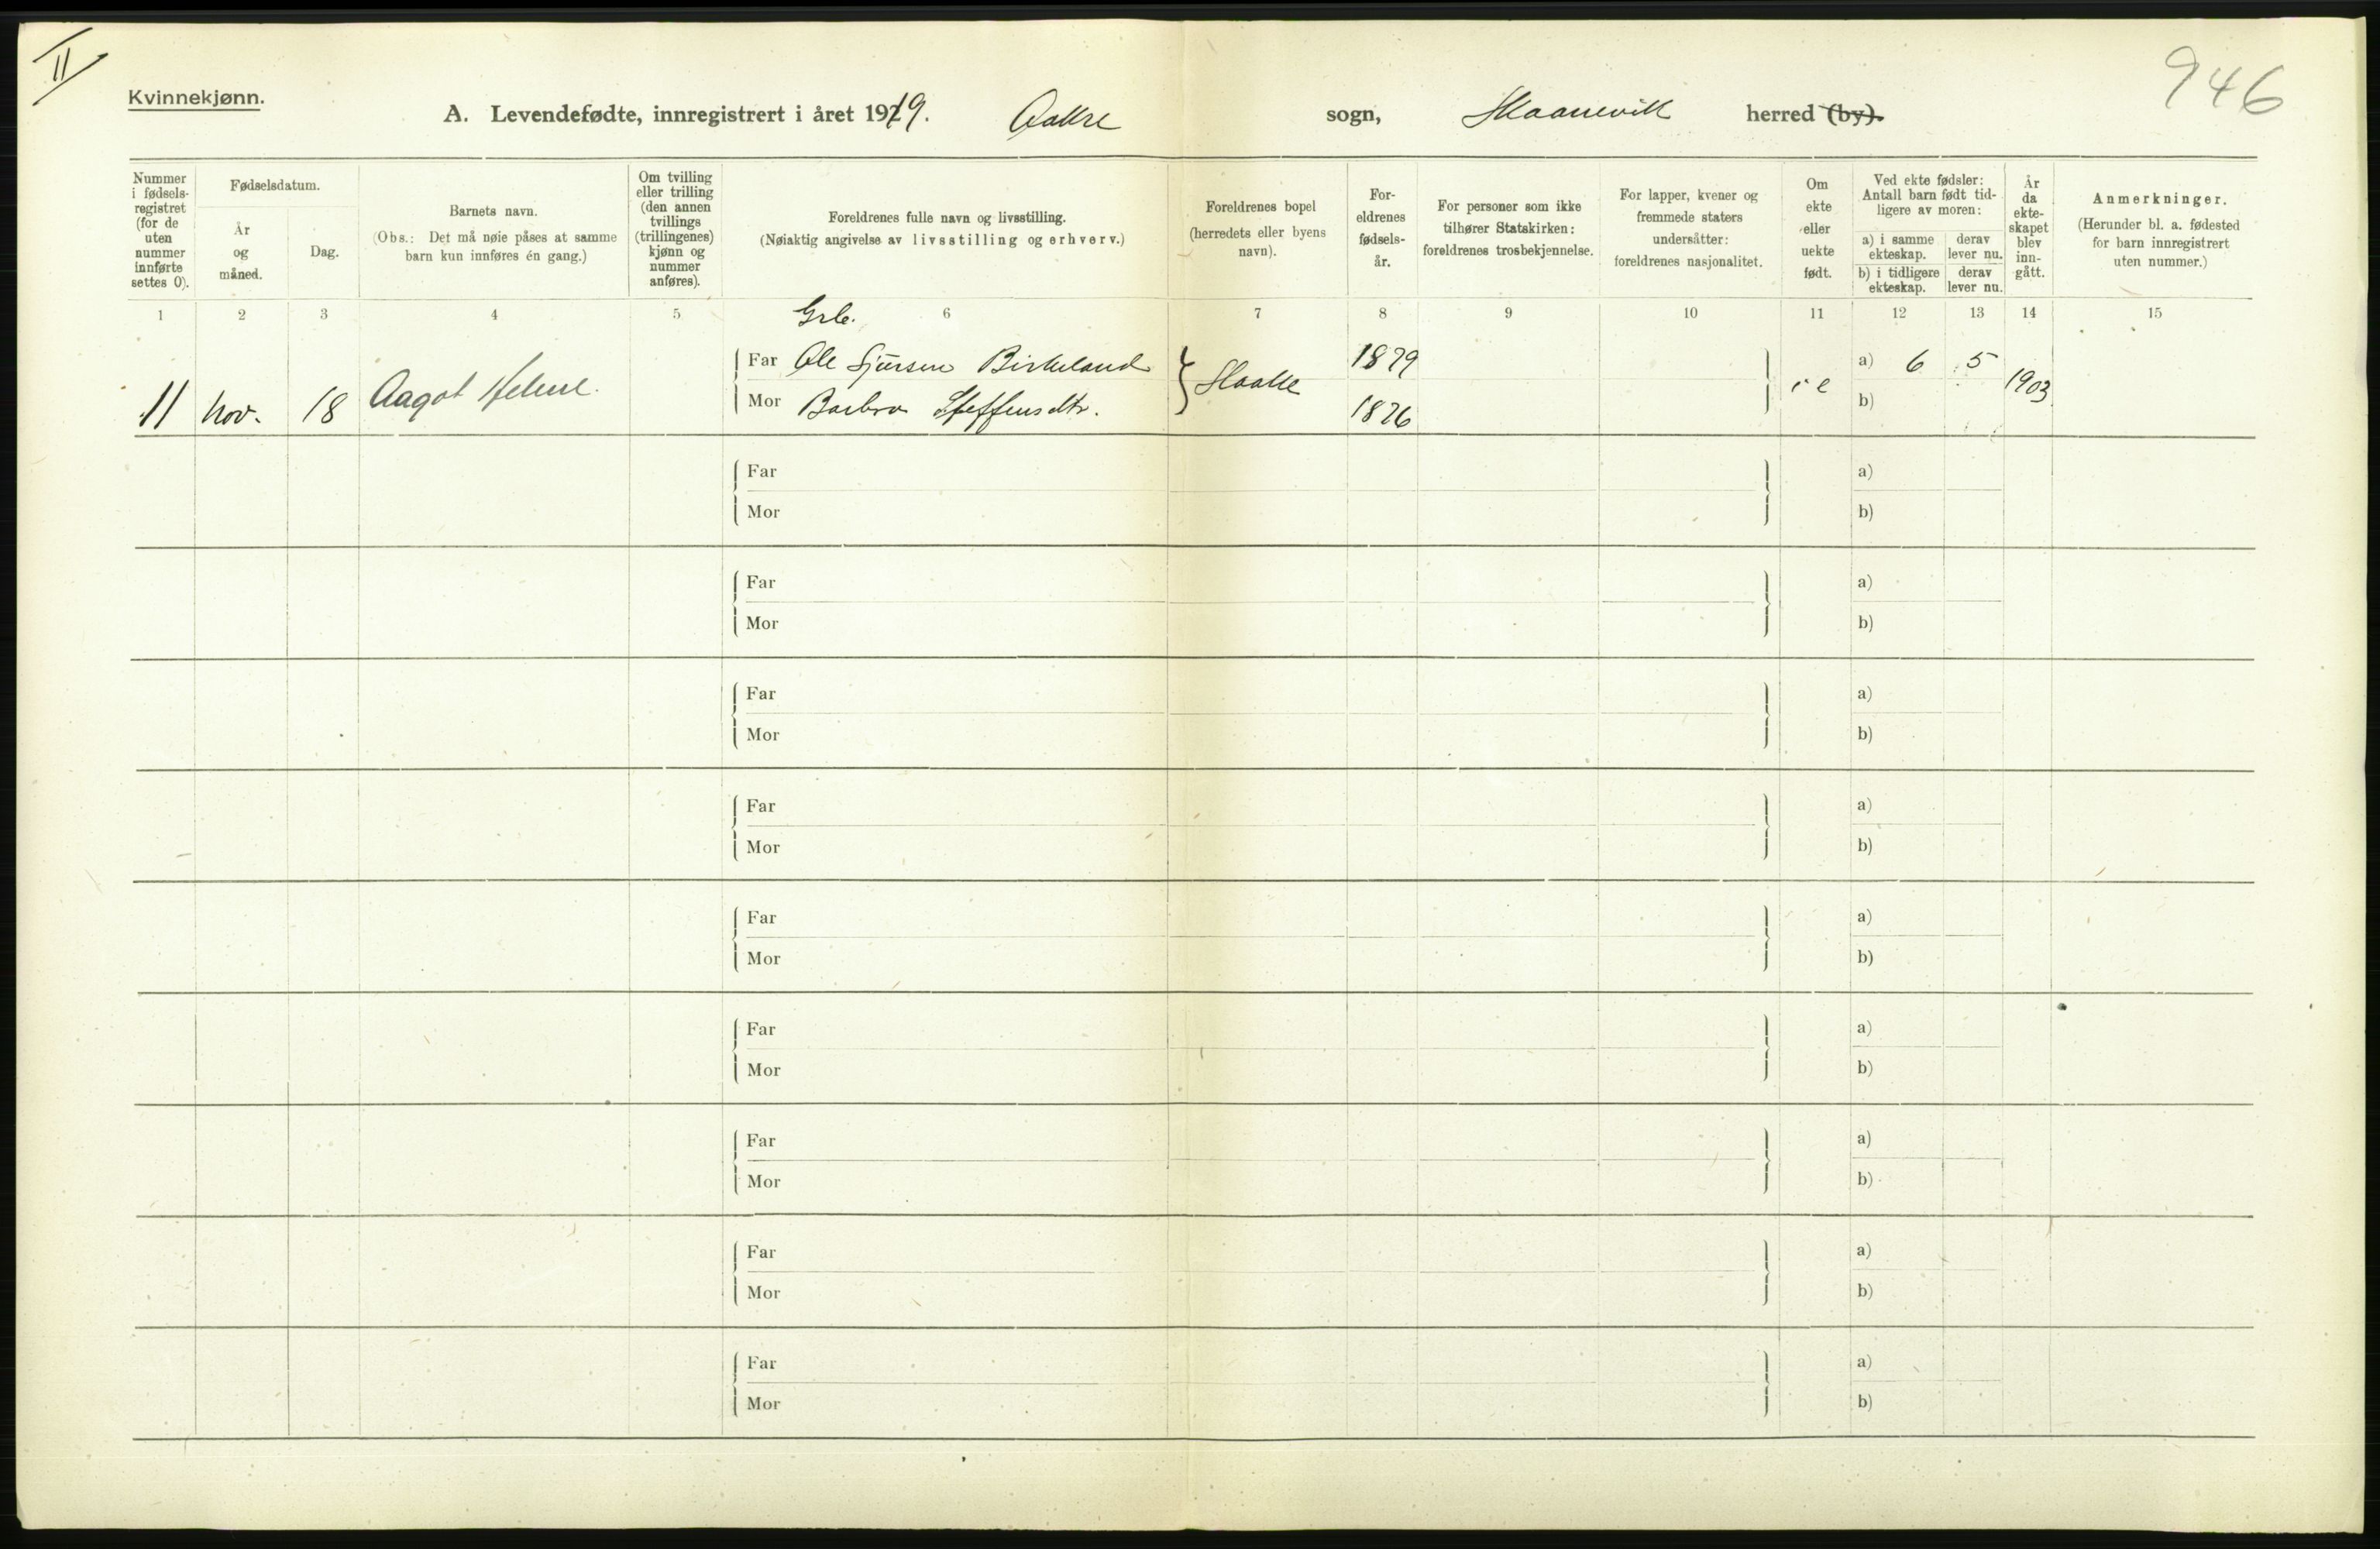 II
946
Kvinnekjønn.
A. Levendefødte, innregistrert i året 1919. Aakre sogn, Skaanevik herred (by).
Nummer i fødsels-registret (for de uten nummer innførte settes 0).
Fødselsdatum.
År og måned.
Dag.
Barnets navn.
(Obs.: Det må nøie påses at samme barn kun innføres én gang.)
Om tvilling eller trilling (den annen tvillings (trillingenes) kjønn og nummer anføres).
Foreldrenes fulle navn og livsstilling.
(Nøiaktig angivelse av livsstilling og erhverv.)
Foreldrenes bopel (herredets eller byens navn).
For-eldrenes fødsels-år.
For personer som ikke tilhører Statskirken: foreldrenes trosbekjennelse.
For lapper, kvener og fremmede staters undersåtter: foreldrenes nasjonalitet.
Om ekte eller uekte født.
Ved ekte fødsler: Antall barn født tid-ligere av moren:
a) i samme ekteskap.
derav lever nu.
b) i tidligere ekteskap.
derav lever nu.
År da ekte-skapet blev inn-gått.
Anmerkninger.
(Herunder bl. a. fødested for barn innregistrert uten nummer.)
1 2 3 4 5 6 7 8 9 10 11 12 13 14 15
Grb.
Far Ole Sjursen Birkeland 1879 a) 6 5
11 Nov. 18 Aagot Helene. 1903
Mor Barbro Steffensdtr. 1876 b)
Far a)
Mor b)
Far a)
Mor b)
Far a)
Mor b)
Far a)
Mor b)
Far a)
Mor b)
Far a)
Mor b)
Far a)
Mor b)
Far a)
Mor b)
Far a)
Mor b)